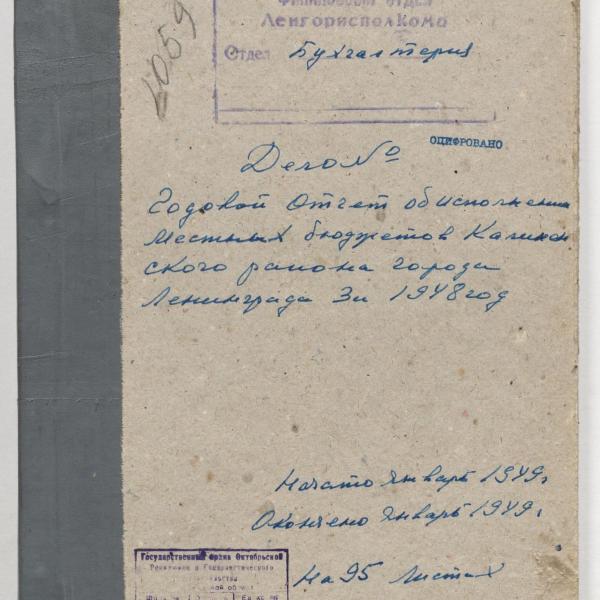 2059
Финансовый отдел
Ленгорисполкома
Отдел Бухгалтерия
ОЦИФРОВАНО
Дело №
Годовой Отчет об исполнении
местных бюджетов Калинин
ского района города
Ленинграда за 1948 год
Начато январь 1949 г.
Окончено январь 1949 г.
На 95 листах
Государственный Архив Октябрьской
Революции и Социалистического